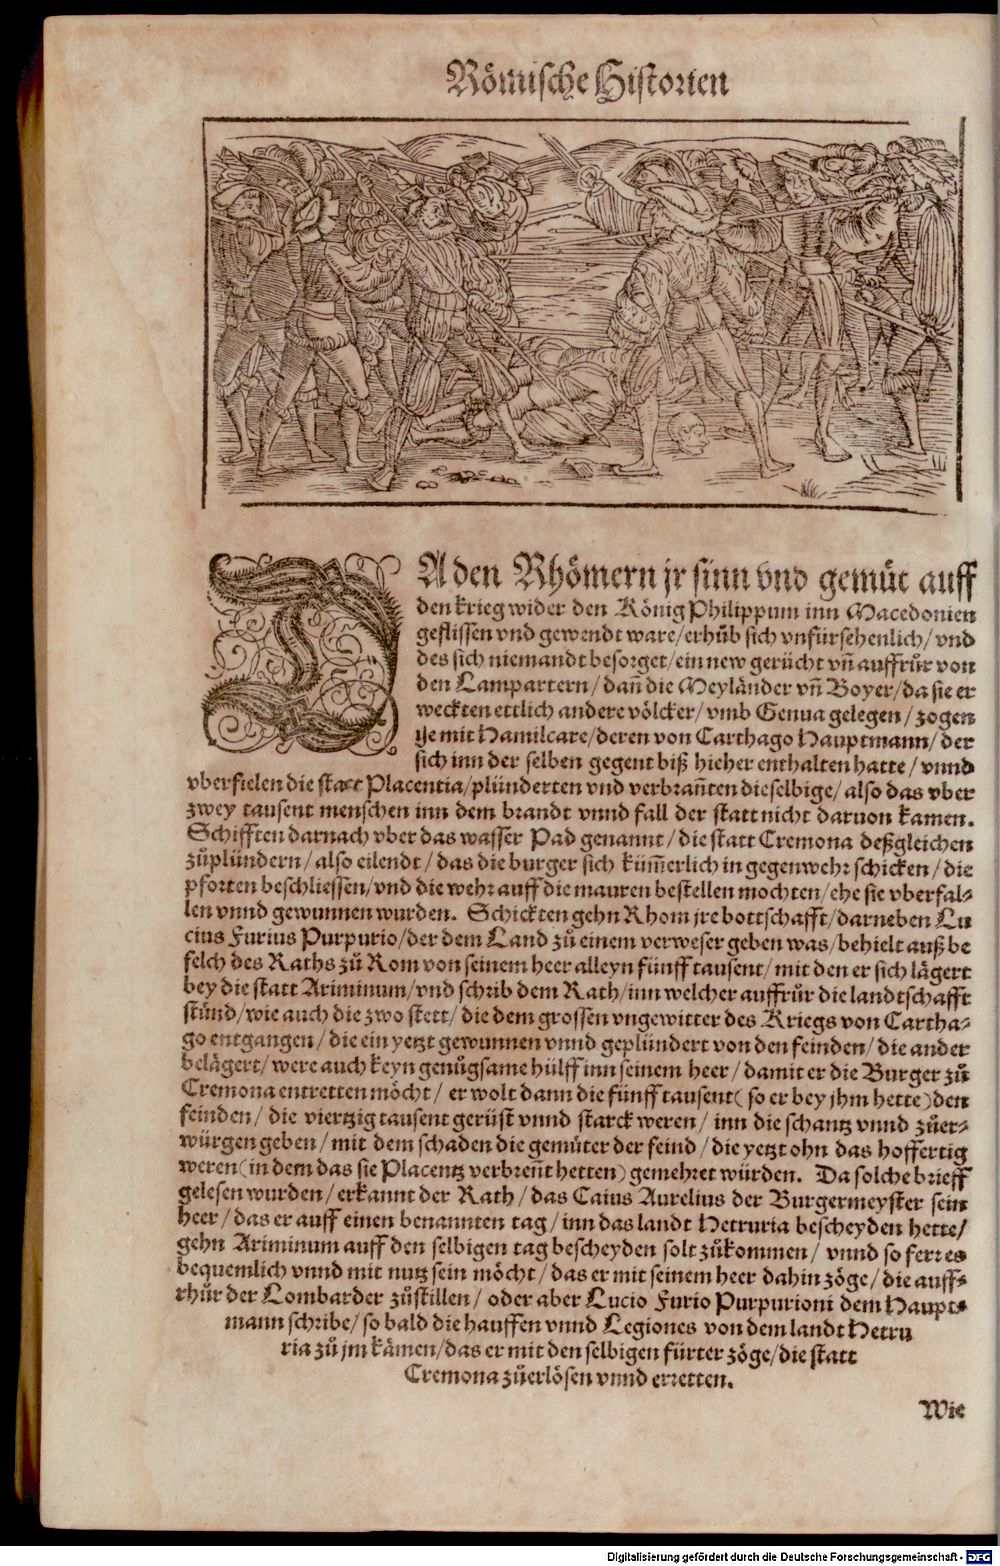 Römische Historien
DA den Rhömern jr sinn vnd gemüt auff
den krieg wider den König Philippum inn Macedonien
geflissen vnd gewendt ware/erhůb sich vnfürsehenlich/vnd
des sich niemandt besorget/ein new gerücht vñ auffrůr von
den Lampartern/dañ die Meyländer vñ Boyer/da sie er
weckten ettlich andere völcker/vmb Genua gelegen/zogen
sye mit Hamilcare/deren von Carthago Hauptmann/der
sich inn der selben gegent biß hieher enthalten hatte/vnnd
vberfielen die statt Placentia/plünderten vnd verbrañten dieselbige/also das vber
zwey tausent menschen inn dem brandt vnnd fall der statt nicht daruon kamen.
Schifften darnach vber das wasser Pad genannt/die statt Cremona deßgleichen
zůplündern/also eilendt/das die burger sich küm̃erlich in gegenwehr schicken/die
pforten beschliessen/vnd die wehr auff die mauren bestellen mochten/ehe sie vberfal⸗
len vnnd gewunnen wurden. Schickten gehn Rhom jre bottschafft/darneben Lu
cius Furius Purpurio/der dem Land zů einem verweser geben was/behielt auß be
felch des Raths zů Rom von seinem heer alleyn fünff tausent/mit den er sich lägert
bey die statt Ariminum/vnd schrib dem Rath/inn welcher auffrůr die landtschafft
stůnd/wie auch die zwo stett/die dem grossen vngewitter des Kriegs von Cartha⸗
go entgangen/die ein yetzt gewunnen vnnd geplündert von den feinden/die ander
belägert/were auch keyn genůgsame hülff inn seinem heer/damit er die Burger zů
Cremona entretten möcht/er wolt dann die fünff tausent(so er bey jhm hette)den
feinden/die viertzig tausent gerüst vnnd starck weren/inn die schantz vnnd zůer⸗
würgen geben/mit dem schaden die gemüter der feind/die yetzt ohn das hoffertig
weren(in dem das sie Placentz verbreñt hetten)gemehret würden. Da solche brieff
gelesen wurden/erkannt der Rath/das Caius Aurelius der Burgermeyster sein
heer/das er auff einen benannten tag/inn das landt Hetruria bescheyden hette/
gehn Ariminum auff den selbigen tag bescheyden solt zůkommen/vnnd so ferr es
bequemlich vnnd mit nutz sein möcht/das er mit seinem heer dahin zöge/die auff⸗
rhůr der Lombarder zůstillen/oder aber Lucio Furio Purpurioni dem Haupt⸗
mann schribe/so bald die hauffen vnnd Legiones von dem landt Hetru
ria zů jm kämen/das er mit den selbigen fürter zöge/die statt
Cremona zůerlösen vnnd erretten.
Wie
Digitalisierung gefördert durch die Deutsche Forschungsgemeinschaft - DFG